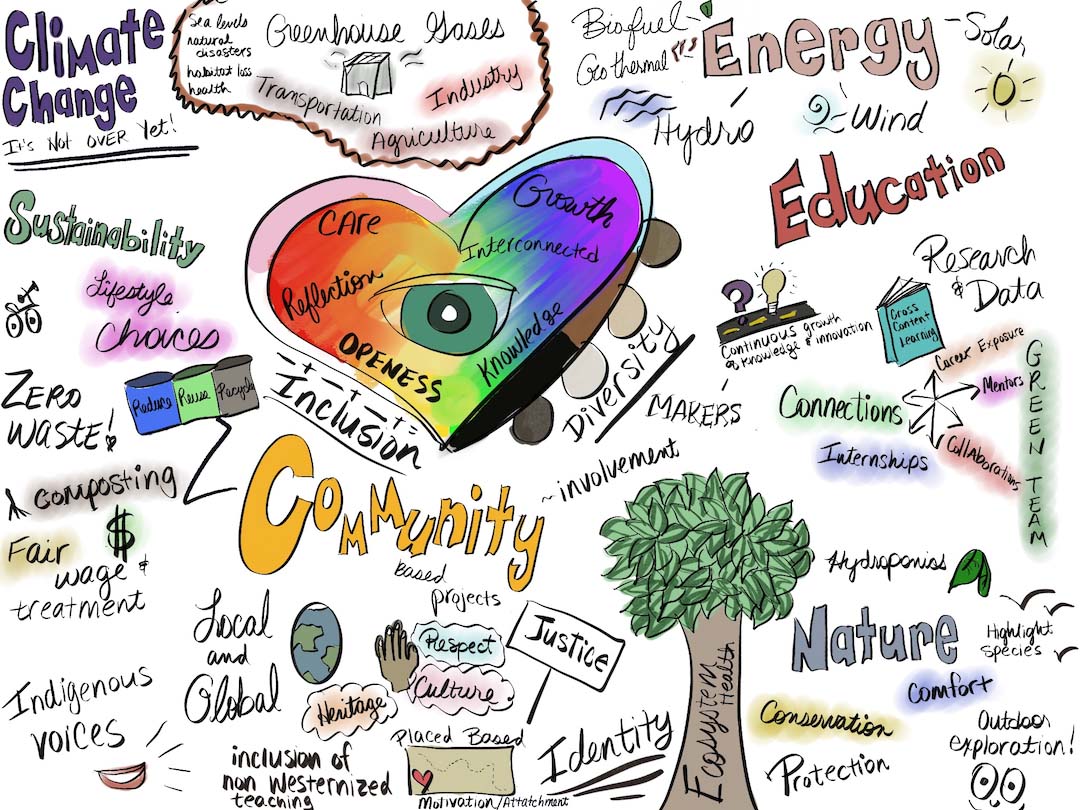 Climate
Change
It's Not OVER Yet!
Sea levels
natural
disasters
habitat loss
health
Greenhouse Gases
Transportation
Industry
Agriculture
Biofuel
Geothermal
Energy
Solar
Hydro
Wind
Sustainability
Lifestyle
Choices
ZERO
WASTE!
Reduce
Reuse
Recycle
composting
$
Fair
wage &
treatment
CARE
Growth
Interconnected
Reflection
OPENESS
Knowledge
Inclusion
Diversity
Education
Research
& Data
?
Continuous growth
of knowledge & innovation
Cross
Content
Learning
MAKERS
Connections
Career Exposure
Mentors
Collaborations
Internships
GREEN TEAM
Community
~involvement
Based
projects
Local
and
Global
Respect
Culture
Heritage
Justice
Indigenous
voices
inclusion of
non westernized
teaching
Placed Based
Motivation/Attatchment
Identity
Ecosystem
Health
Hydroponics
Nature
Highlight
Species
Comfort
Conservation
Protection
Outdoor
exploration!